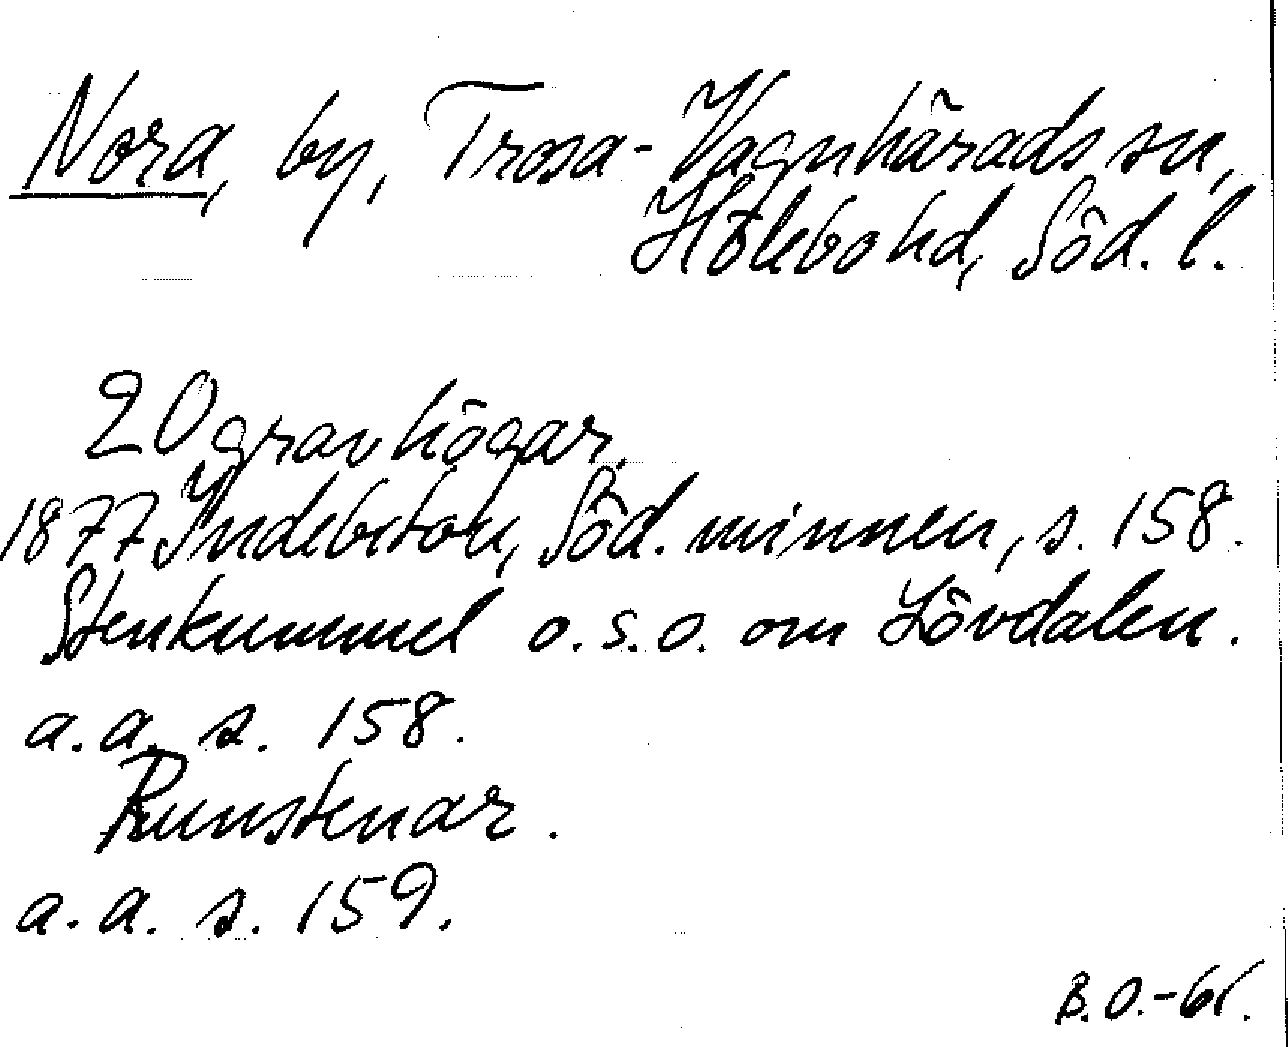 Nora, by, Trosa-Vagnhärads sn,
Hölebo hd, Söd. l.
20 gravhögar.
1877 Indebetou, Söd. minnen, s. 158.
Stenkummel o.s.o. om Lövdalen.
a.a. s. 158.
Runstenar.
a.a. s. 159.
B.O.-61.